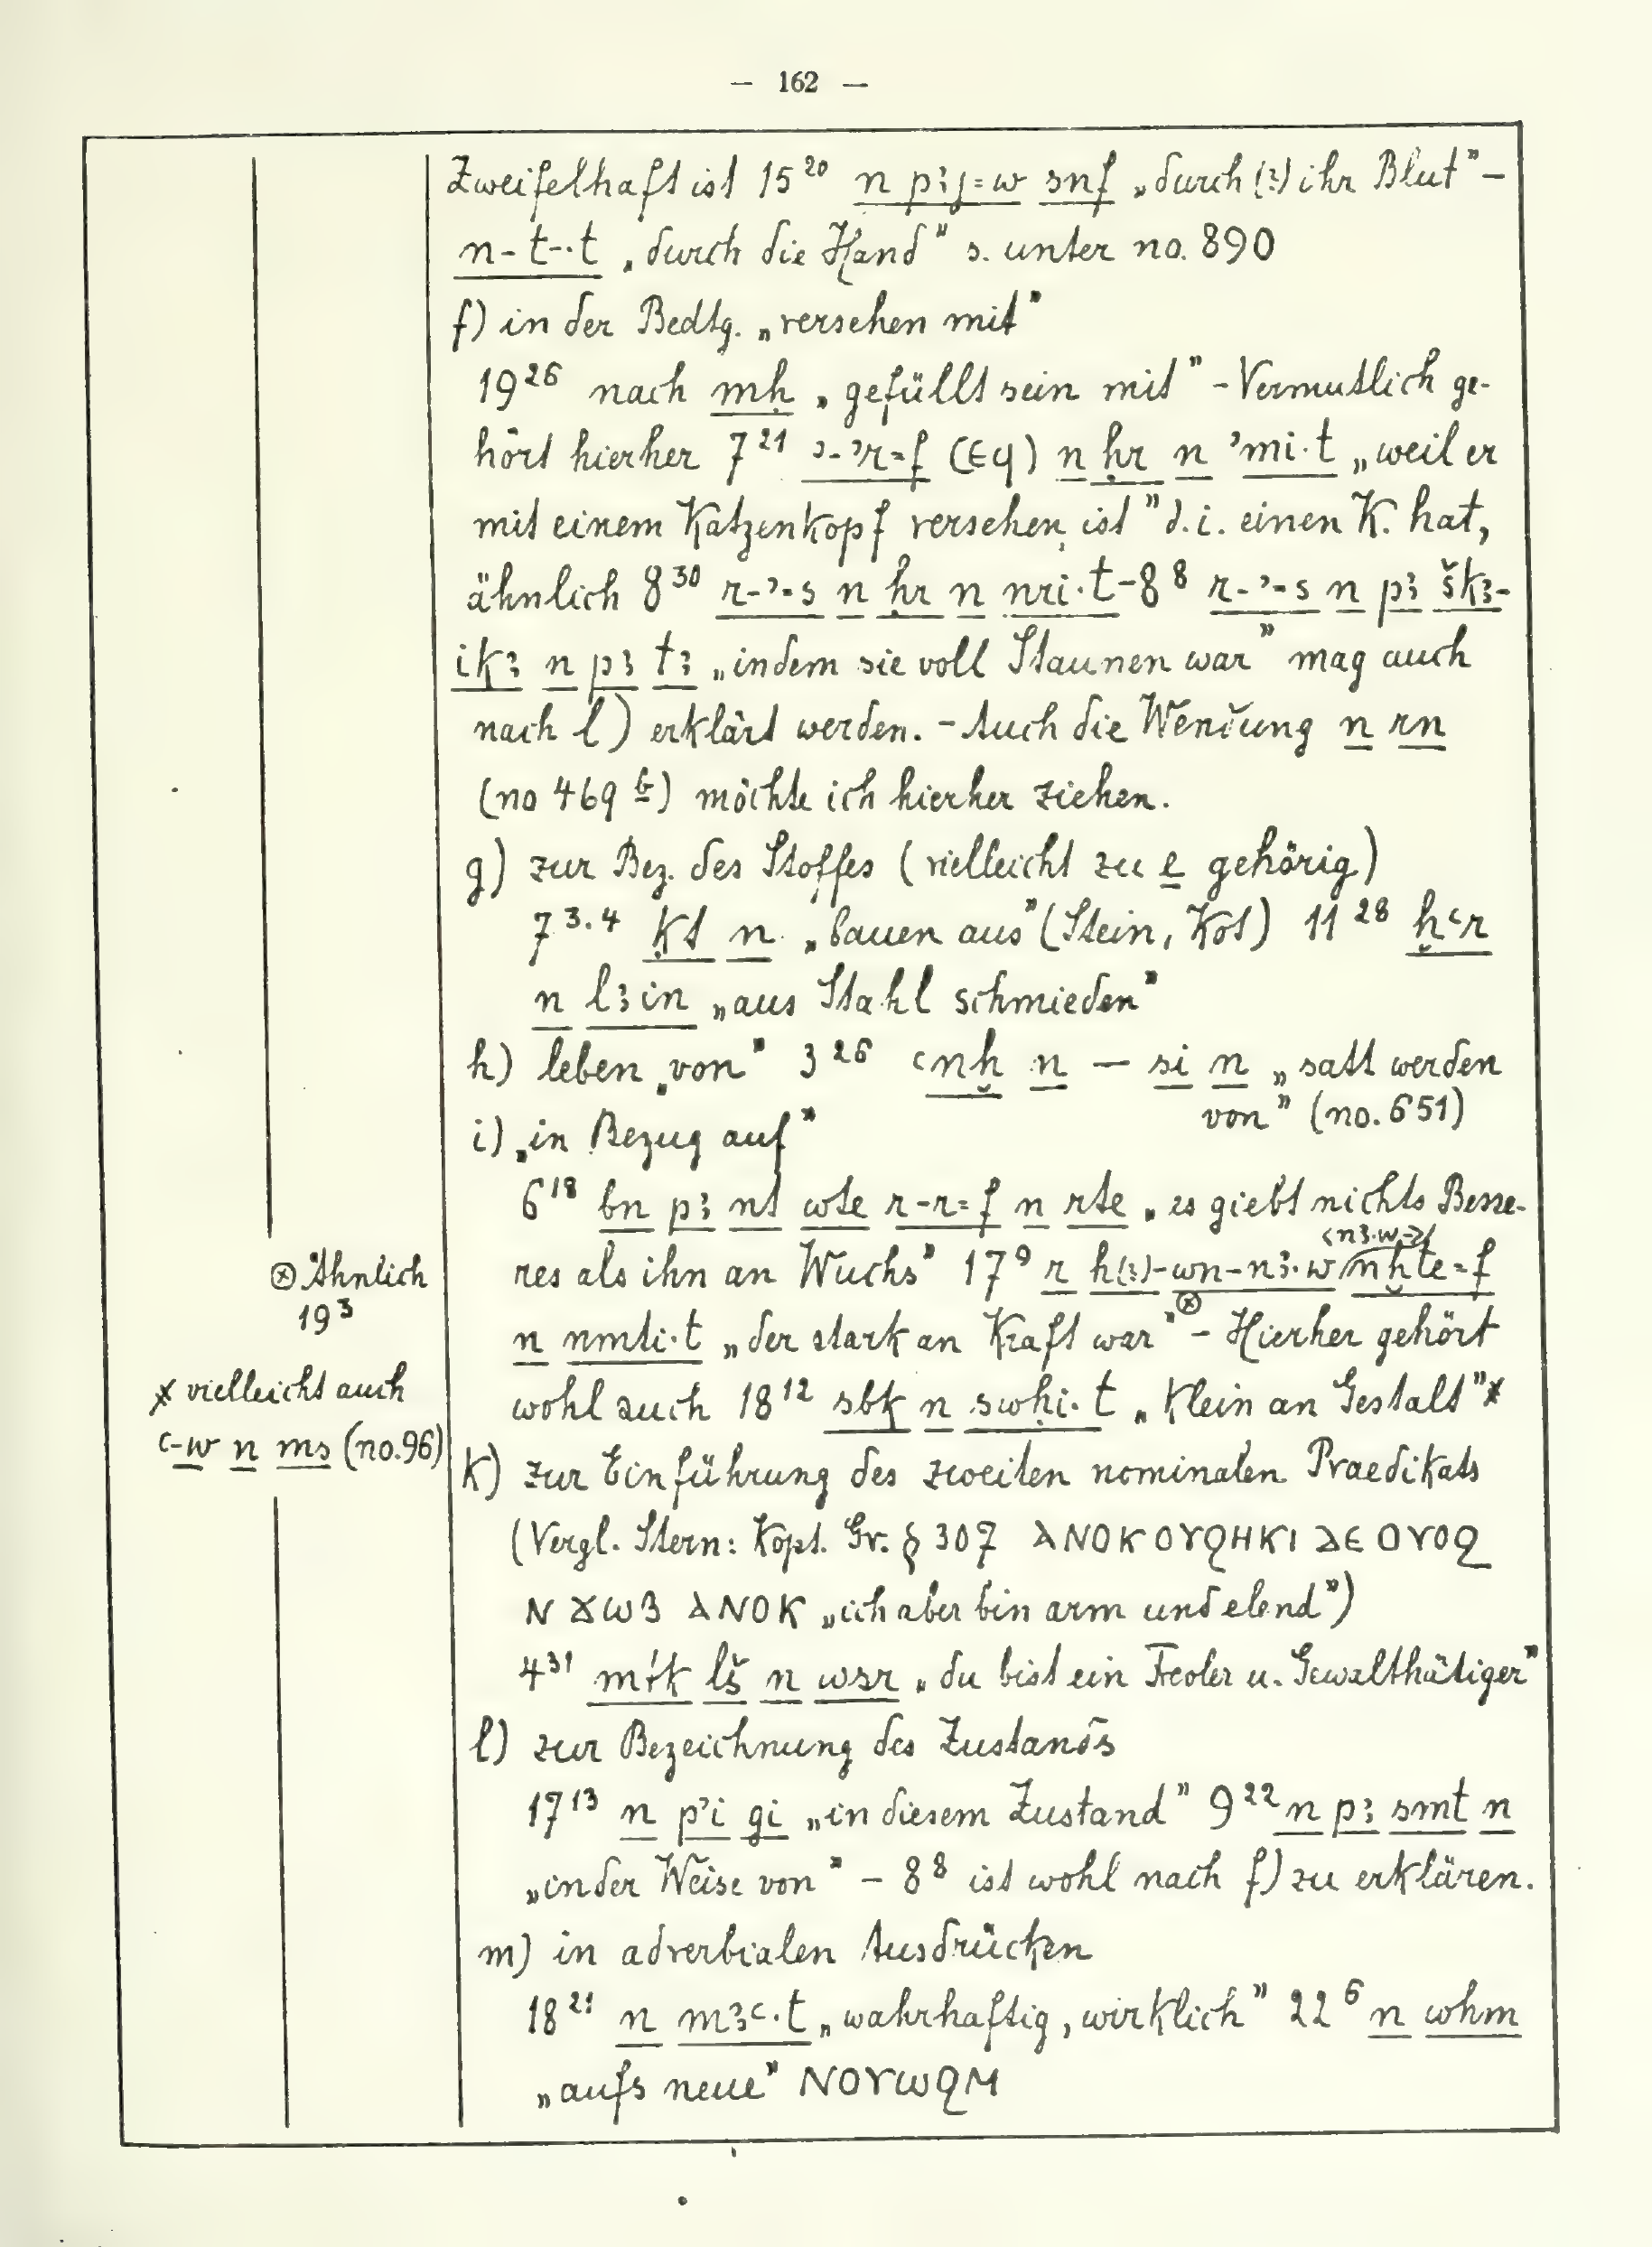 — 162 —
Zweifelhaft ist 15²⁰ n pꜣj=w snf „durch (?) ihr Blut" –
n-t-·t „durch die Hand" s. unter no. 890
f) in der Bedtg. „versehen mit"
19²⁶ nach mḥ „gefüllt sein mit" – Vermutlich ge-
hört hierher 7²¹ ꜣ-ʾr=f (Eq) n ḥr n ʾmi·t „weil er
mit einem Katzenkopf versehen ist" d.i. einen K. hat,
ähnlich 8³⁰ r-ʾ=s n ḥr n nri·t – 8⁸ r-ʾ=s n pꜣ škꜣ-
ikꜣ n pꜣ tꜣ „indem sie voll Staunen war" mag auch
nach l) erklärt werden. – Auch die Wendung n rn
(no 469 b) möchte ich hierher ziehen.
g) zur Bez. des Stoffes (vielleicht zu e gehörig)
7³·⁴ ḳt n „bauen aus" (Stein, Kot) 11²⁸ ḫꜥr
n lꜣin „aus Stahl schmieden"
h) leben „von" 3²⁶ ꜥnḫ n — si n „satt werden
von" (no. 651)
i) „in Bezug auf"
6¹⁸ bn pꜣ nt wte r-r=f n rte „es giebt nichts Besse-
<nꜣ·w->
res als ihn an Wuchs" 17⁹ r h(?)-wn-nꜣ·w/nḫte=f
⊗ Ähnlich
19³
n nmti·t „der stark an Kraft war"⊗ – Hierher gehört
wohl auch 18¹² sbk n swḥi·t „Klein an Gestalt" x
x vielleicht auch
ꜥ-w n ms (no. 96)
k) zur Einführung des zweiten nominalen Praedikats
(Vergl. Stern: Kopt. Gr. § 307 ⲀⲚⲞⲔ ⲞⲨϨⲎⲔⲒ ⲆⲈ ⲞⲨⲞϨ
Ⲛ ϪⲰⲂ ⲀⲚⲞⲔ „ich aber bin arm und elend")
4³¹ mtk lš n wsr „du bist ein Frevler u. Gewaltthätiger"
l) zur Bezeichnung des Zustands
17¹³ n pʾi gi „in diesem Zustand" 9²² n pꜣ smt n
„in der Weise von" – 8⁸ ist wohl nach f) zu erklären.
m) in adverbialen Ausdrücken
18²¹ n mꜣꜥ·t „wahrhaftig, wirklich" 22⁶ n whm
„aufs neue" ⲚⲞⲨⲰϨⲘ